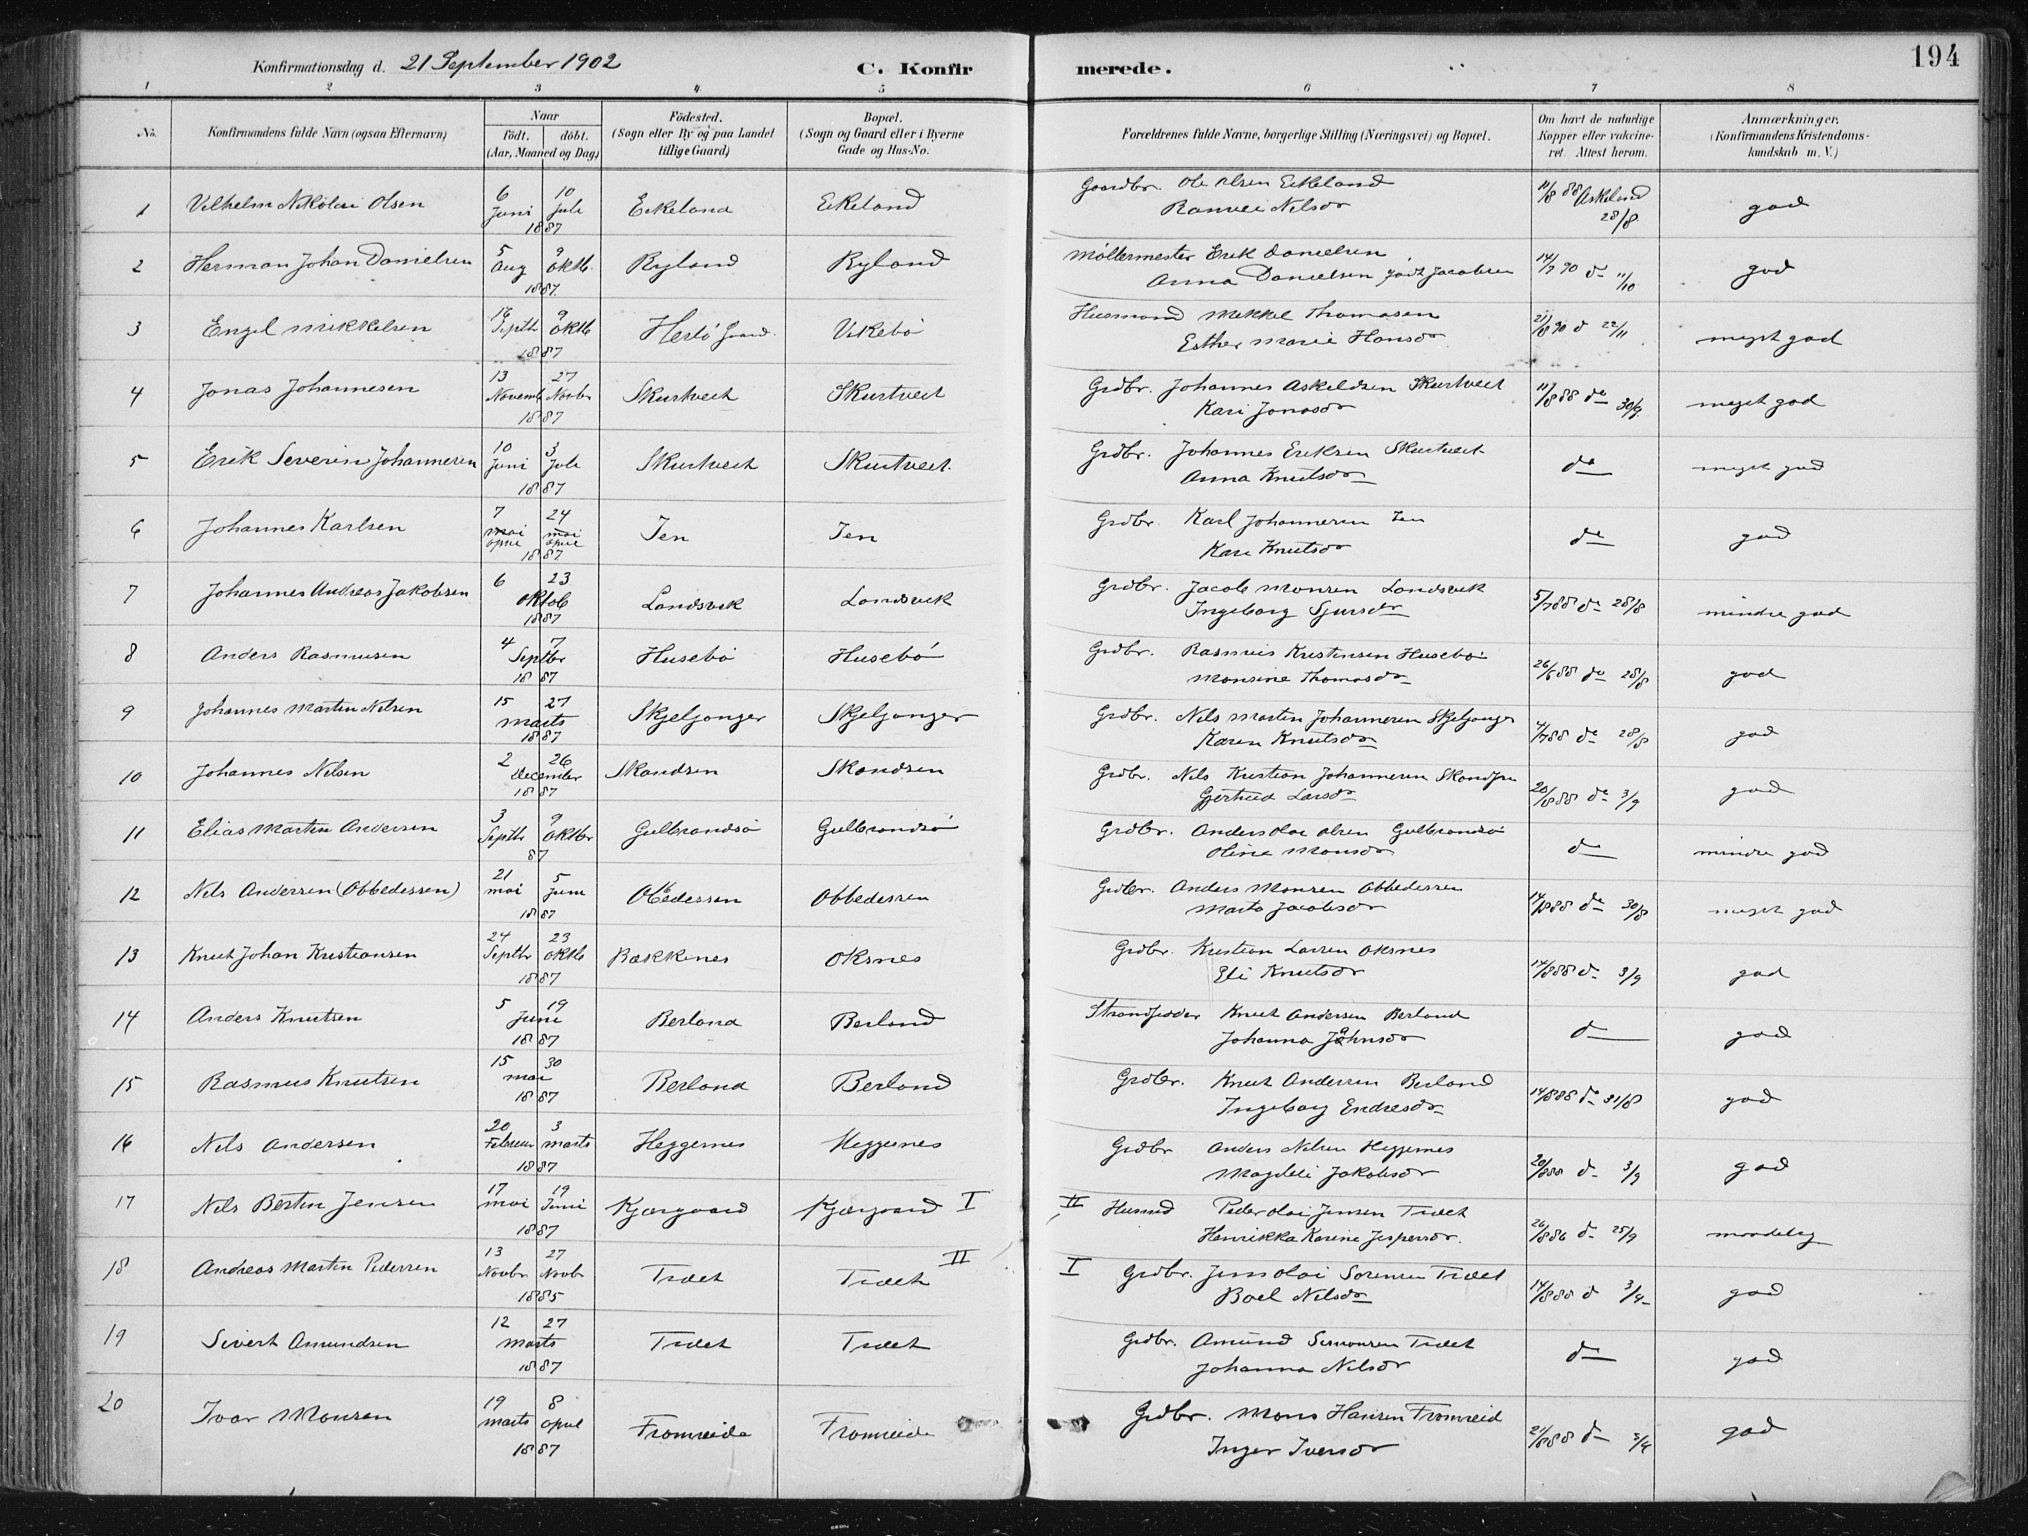 194
Konfirmationsdag d. 21 September 1902 C. Konfirmerede.
1 2 3 4 5 6 7 8
No. Konfirmandens fulde Navn (ogsaa Efternavn) Naar født. døbt. (Aar, Maaned og Dag) Födested. (Sogn eller By og paa Landet tillige Gaard) Bopæl. (Sogn og Gaard eller i Byerne Gade og Hus-No. Forældrenes fulde Navne, borgerlige Stilling (Næringsvei) og Bopæl. Om havt de naturlige Kopper eller vakcineret. Attest herom. Anmærkninger. (Konfirmandens Kristendomskundskab m. V.)
1 Vilhelm Nikolai Olsen 6 Juni 10 Juli 1887 Eikeland Eikeland Gaardbr. Ole Olsen Eikeland 11/8 88 Askeland 28/8 god
Ranvei Nilsdr
2 Herman Johan Danielsen 5 Aug 9 Oktb. 1887 Ryland Ryland Møllermester Erik Danielsen 14/7 90 do 11/10 god
Anna Danielsen født Jacobsen
3 Engel Mikkelsen 16 Septb 9 Oktb 1887 Herlö Vikebö Husmand Mikkel Thomasen 90 do 22/11 meget god
Esther Marie Hansdr
4 Jonas Johannesen 13 Novemb 27 Novbr 1887 Skurtveit Skurtveit Grdbr. Johannes Askeldsen Skurtveit 11/8 88 do 30/9 meget god
Kari Jonasdr
5 Erik Severin Johannesen 10 Juni 3 Juli 1887 Skurtveit Skurtveit Grdbr. Johannes Eriksen Skurtveit do meget god
Anna Knutsdr
6 Johannes Karlsen 7 mai april 24 mai april 1887 Ien Ien Grdbr. Karl Johannesen Ien do god
Kari Knutsdr
7 Johannes Andreas Jakobsen 6 23 Oktob 1887 Landsvik Landsvik Grdbr. Jacob Monsen Landsvik 5/7 88 do 28/8 mindre god
Ingeborg Sjursdr
8 Anders Rasmusen 4 7 Septbr 1887 Husebö Husebö Grdbr. Rasmus Kristensen Husebö 26/6 88 do 28/8 god
Monsine Thomasdr
9 Johannes Martin Nilsen 15 27 Marts 1887 Skjeljanger Skjeljanger Grdbr. Nils Martin Johannesen Skjeljanger 4/7 88 do 28/8 god
Karen Knutsdr
10 Johannes Nilsen 2 26 December 1887 Skandsen Skandsen Grdbr. Nils Kristian Johannesen Skandsen 20/8 88 do 3/9 god
Gjertrud Larsdr
11 Elias Martin Andersen 3 Septbr 9 Oktbr 87 Gulbrandsö Gulbrandsö Grdbr. Anders Olai Olsen Gulbrandsö do mindre god
Oline Monsdr
12 Nils Andersen (Obbedessen) 21 mai 5 Juni 1887 Obbedessen Obbedessen Grdbr. Anders Monsen Obbedessen 14/8 88 do 30/8 meget god
Marta Jacobsdr
13 Knut Johan Kristiansen 24 Septbr 23 Oktb 1887 Bakkenes Oksnes Grdbr. Kristian Larsen Oksnes 14/8 88 do 3/9 god
Eli Knutsdr
14 Anders Knutsen 5 19 Juni 1887 Berland Berland Strandsidder Knut Andersen Berland do god
Johanna Jahnsdr
15 Rasmus Knutsen 15 30 mai 1887 Berland Berland Grdbr. Knut Andersen Berland 14/8 88 do 31/8 god
Ingeborg Endresdr
16 Nils Andersen 20 Februar 3 Marts 1887 Heggernes Heggernes Grdbr Anders Nilsen Heggernes 20/8 88 do 3/9 god
Magdeli Jakobsdr
17 Nils Bertin Jensen 17 mai 19 Juni 1887 Kjærgaard Kjærgaard I II Husmd Peder Olai Jensen Tvdet 26/8 86 do 25/9 maadelig
Henrikka Karine Jespersdr.
18 Andreas Martin Pedersen 13 Novbr 27 Novb 1885 Tvdet Tvdet II I Grdbr. Jens Olai Sorensen Tvdet 14/8 88 do 3/4 god
Boel Nilsdr
19 Sivert Amundsen 12 27 Marts 1887 Tvdet Tvdet Grdbr. Amund Simonsen Tvdet do god
Johanna Nilsdr
20 Ivar Monsen 19 marts 8 april 1887 Fromreide Fromreide Grdbr. Mons Hansen Fromreid 21/8 88 do 3/4 god
Inger Iversdr